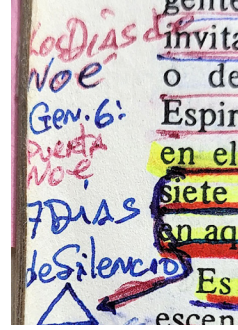 Los Días de
Noé
Gen. 6:
puerta
Noé
7 DIAS
de Silencio
gente
invita
o de
Espir
en el
siete
en aq
Es
escen